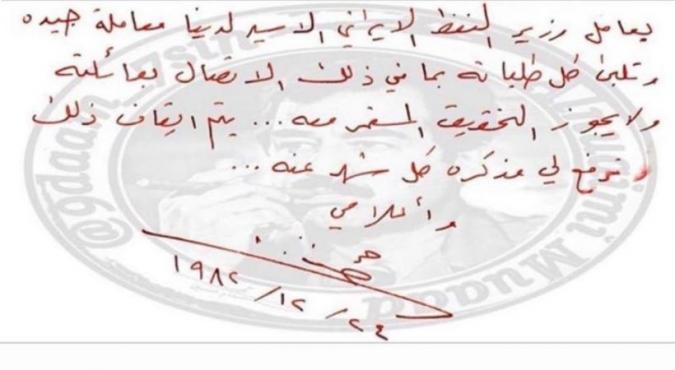 يعامل وزير النفط الايراني الاسير لدينا معاملة جيده
وتلبى كل طلباته بما في ذلك الاتصال بعائلته
ولا يجوز التحقيق المستمر معه ... يتم ايقاف ذلك
و ترفع لي مذكره كل شهر عنه ...
وأعلامي
١٩٨٢/١٢/٢٤
@9daam
Muaad